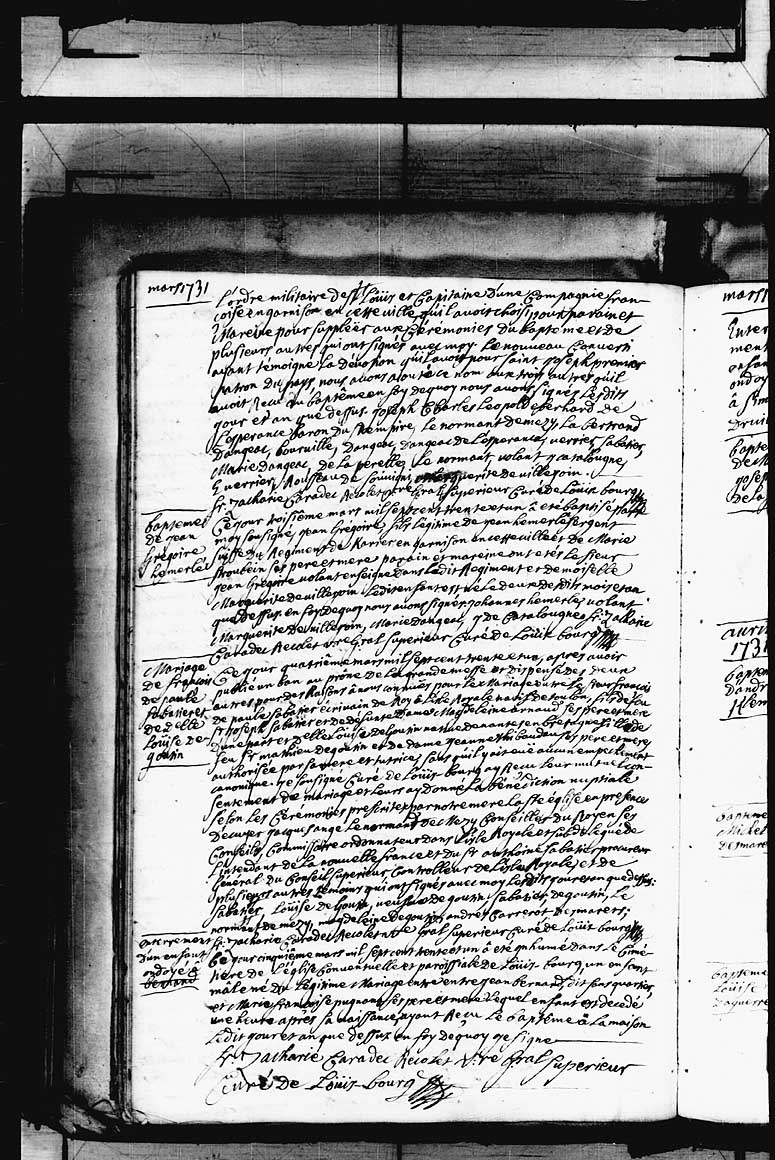 mars 1731
l'ordre militaire de st Loüis et Capitaine d'une Compagnie fran-
coise en garnison en cette ville, qu'il avoit choisi pour parain et
Mareine pour suppléer aux Ceremonies du baptême et de
plusieurs autres qui ont signés avec moy. Le nouveau Converti
ayant témoigné la dévotion qu'il avoit pour saint joseph premier
patron du pays, nous avons ajouté ce nom aux trois autres qu'il
avoit Recu du baptême en foy dequoy nous avons signés Lesdits
jour et an que dessus. joseph Charles Leopold eberhard de
L'esperance baron du St Empire, Le normant de mezy, La bertrand
Dangeac, bourville, Dangeac, dangeac de L'esperance, verrier, Sabatier,
Marie dangeac, de la perelle, Le normant, volant, g catalougne,
Guerrier, Rousseau de Souvigni, Marguerite de villejoin.
fr. Zacharie Caradec Recolet Vre Gral Superieur Curé de Loüis bourg
baptemes
de jean
Grégoire
hemerlé
Ce jour troisième mars mil sept cent trente et un à été baptisé par
moy soussigné, jean Grégoire, fils légitime de jean hemerlé Sergent
suisse du Regiment de Karrer en garnison en cette ville et de Marie
stroubein ses pere et mere parain et mareine ont etés le sieur
jean Grégoire volant enseigne dans ledit Regiment et demoiselle
Marguerite de villejoin. Ledit enfant est né le deux desdits mois et an
que dessus. en foy dequoy nous avons signés. johannes hemerlé, volant
Marguerite de villejoin, Marie dangeac, g de Catalougne, fr. Zacharie
Caradec Recolet Vre Gral Superieur Curé de Loüis bourg
Mariage
de françois
de paule
Sabatier et
de Delle
Loüise de
goutin
Ce jour quatrième mars mil sept cent trente et un, après avoir
publié un ban au prône de la grande messe et dispensé des deux
autres pour des Raisons à nous connuës pour le Mariage entre le sieur françois
de paule Sabatier écrivain du Roy à L'isle Royale natif de toulon, fils de feu
sr joseph Sabatier et de défunte Dame Magdeleine arnaud ses pere et mere
d'une part et Delle Loüise de Goutin native de nantes en bretagne fille de
feu Sr mathieu de goutin et de dame jeanne thibaudau ses pere et mere,
authorisée par sa mere et tutrice, sans qu'il y ait eu aucun empechement
canonique, je soussigné Curé de Loüis bourg ay Recu leur mutuel con-
sentement de mariage et leurs ay Donné La bénédiction nuptiale
selon les Cérémonies prescrites par notre mere la Ste église en presence
de jacques ange Lenormand de Mezy Conseiller du Roy en ses
Conseils, Commissaire ordonnateur dans L'isle Royale et subdelegué de
L'intendant de la nouvelle france et du Sr anthoine Sabatier procureur
Général du Conseil superieur, Controlleur de L'isle Royale, et de
plusieurs autres témoins qui ont signés avec moy Lesdits jour et an que dessus.
Sabatier, Loüise de Goutin, veuve de goutin, Sabatier, degoutin, Le
normant de mezy, magdeleine degoutin, andré Carrerot, Desmarets,
fr. Zacharie Caradec Recolet Vre Gral Superieur Curé de Loüis bourg
enterrement
d'un enfant
ondoyé de
bernard
Ce jour cinquième mars mil sept cent trente et un à été inhumé dans le Cimé-
tiére de l'église Conventuelle et paroissiale de Loüis bourg, un enfant
mâle né du Légitime Mariage entre jean bernard dit sans quartier
et Marie françoise pugnant ses pere et mere Lequel enfant est décédé
une heure aprés sa naissance, ayant Recu Le baptême à la maison
Ledit jour et an que dessus en foy dequoy je signe
fr. Zacharie Caradec Recolet V.re Gral Superieur
Curé de Loüis bourg
mars 1
Enter
ment
enfan
ondoy
avril
1731
baptem
d'andr
baptême
Michel
desmare
baptême
Loüise